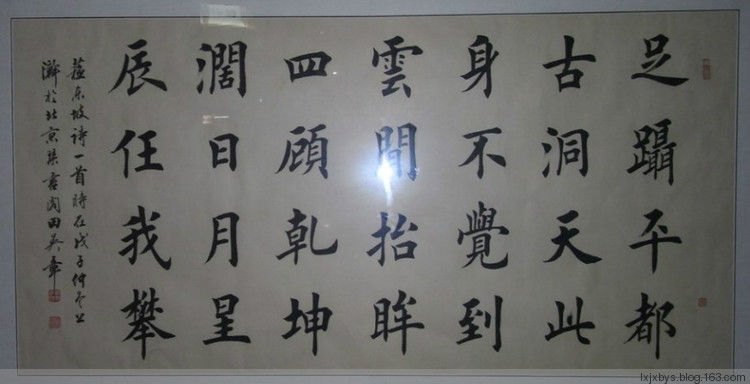 足躡平都
古洞天此
身不覺到
雲間抬眸
四顧乾坤
濶日月星
辰任我攀
蘇東坡詩一首時在戊子仲冬上
澣於北京集閣田英章
lxjxbys.blog.163.com